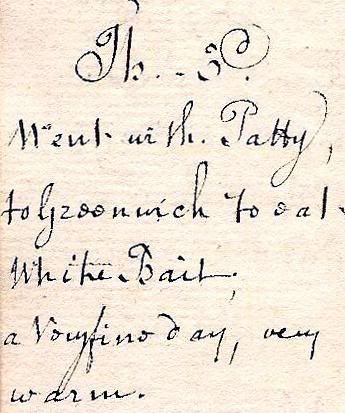 Th. - 3d.
Went with Patty,
to Greenwich to eat
White Bait,
a Very fine day, very
warm.